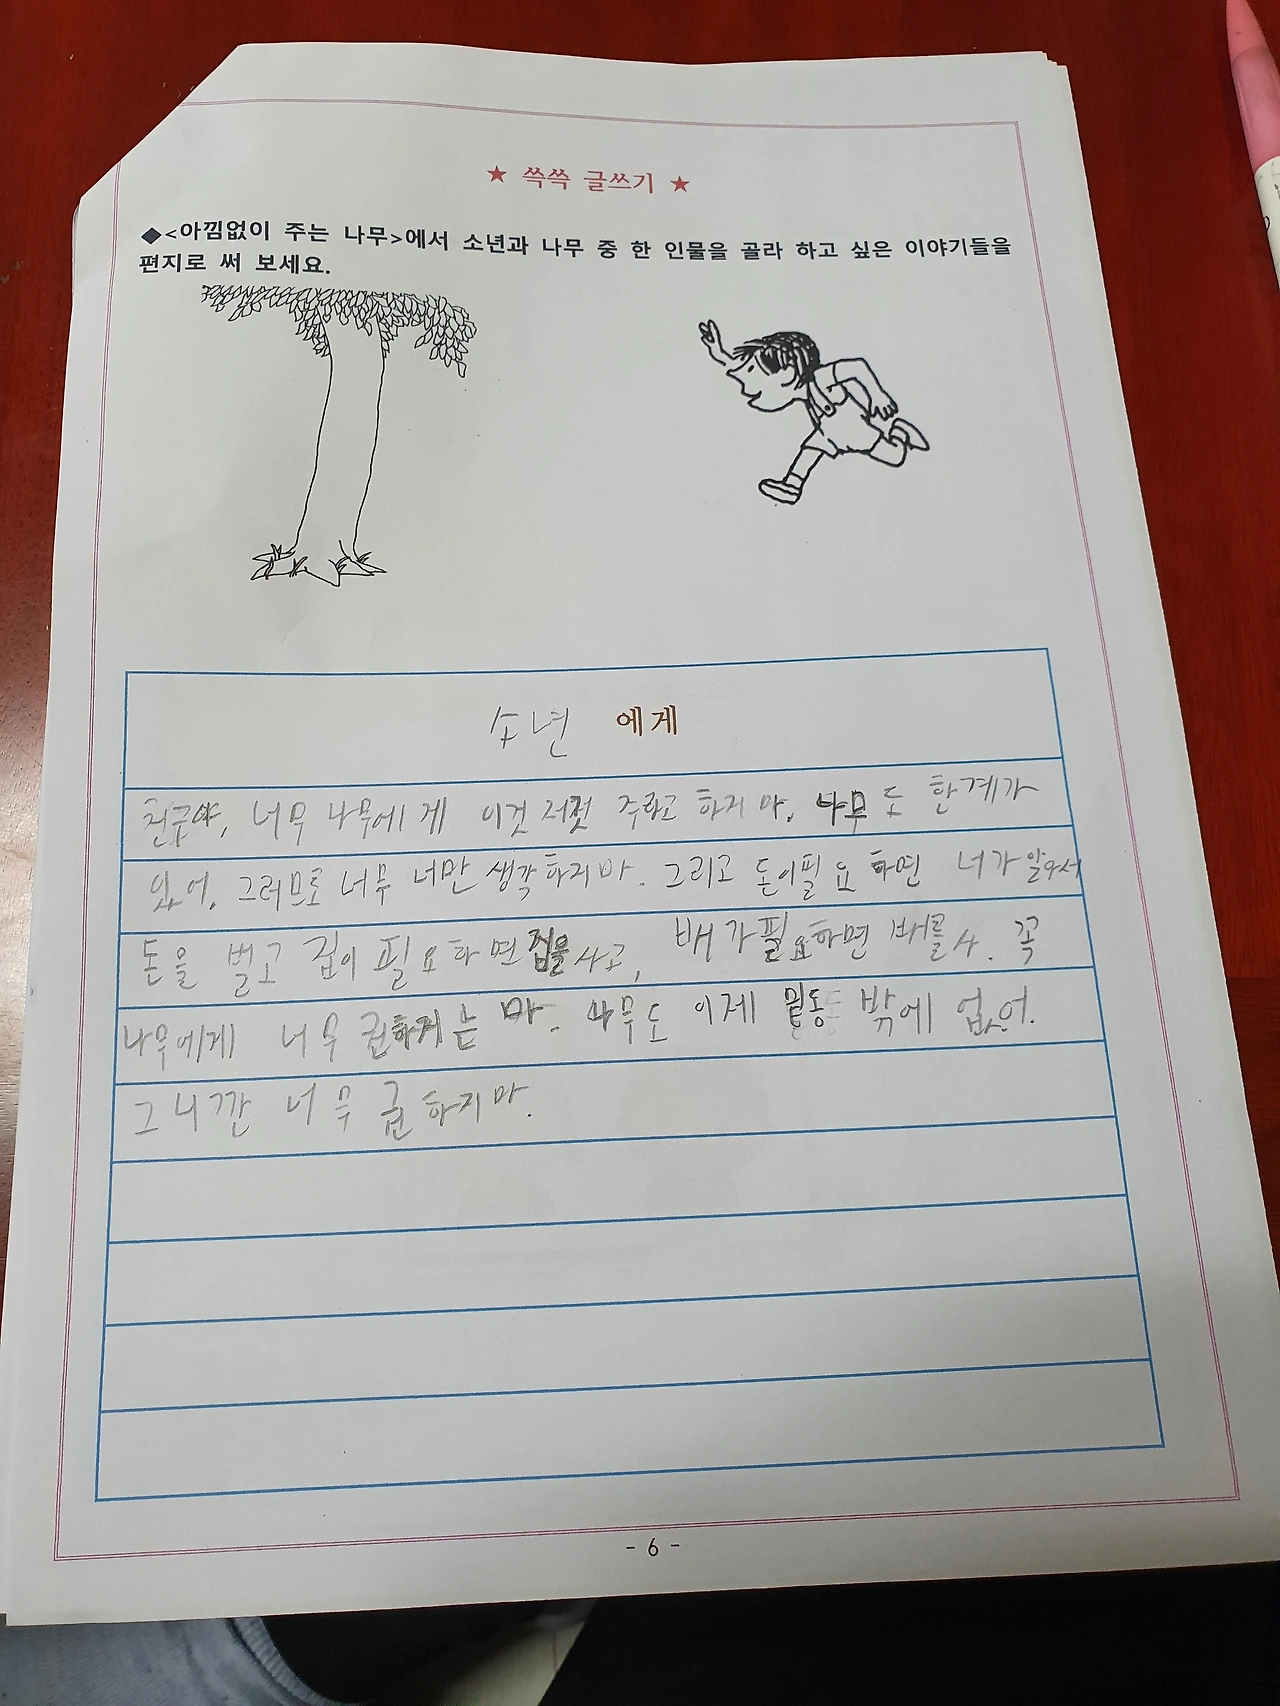 ★ 쓱쓱 글쓰기 ★
◆<아낌없이 주는 나무>에서 소년과 나무 중 한 인물을 골라 하고 싶은 이야기들을
편지로 써 보세요.
소년 에게
친구야, 너무 나무에게 이것 저것 주라고 하지 마. 나무도 한계가
있어. 그러므로 너무 너만 생각하지마. 그리고 돈이필요하면 너가 알아서
돈을 벌고 집이 필요하면 집을 사고, 배가필요하면 배를 사. 꼭
나무에게 너무 권하지는 마. 나무도 이제 밑동 밖에 없어.
그니깐 너무 권하지마.
- 6 -